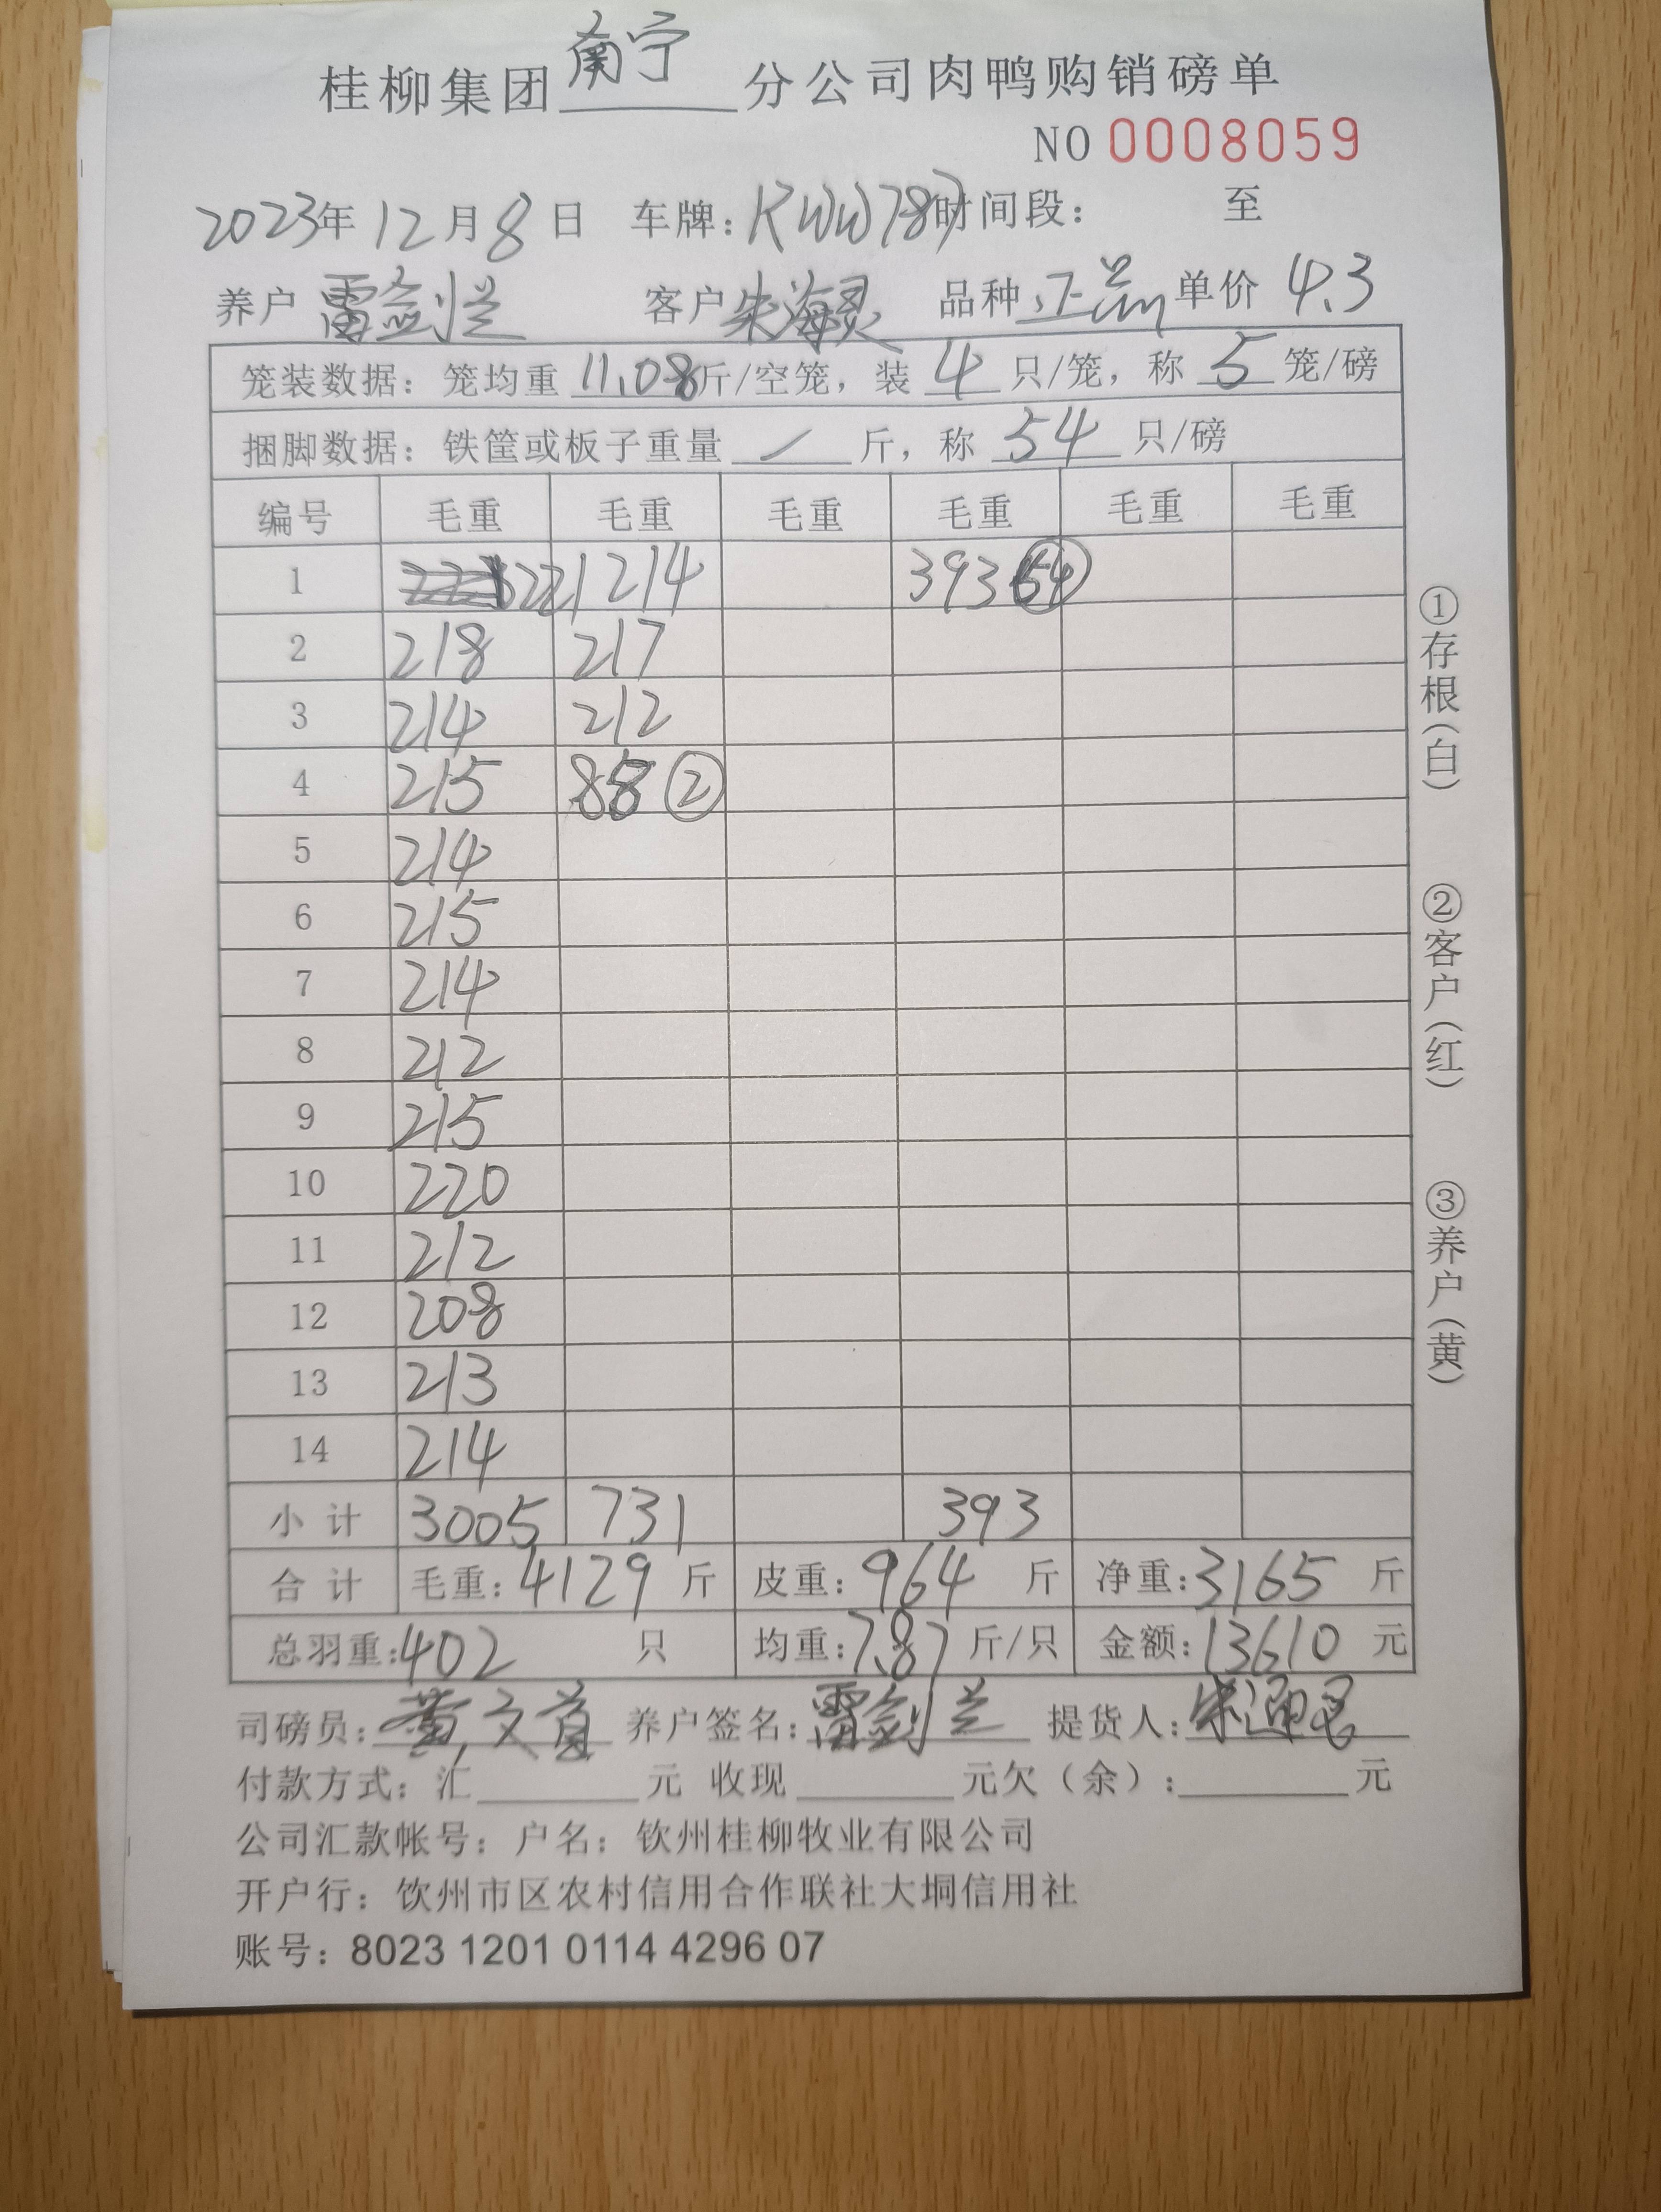 桂柳集团南宁分公司肉鸭购销磅单
NO 0008059
2023年12月8日 车牌：KWW787 时间段： 至
养户 雷剑兰 客户 朱海灵 品种 正品 单价 4.3
笼装数据：笼均重 11.08 斤/空笼，装 4 只/笼，称 5 笼/磅
捆脚数据：铁筐或板子重量 / 斤，称 54 只/磅
编号 毛重 毛重 毛重 毛重 毛重 毛重
1 221 214 393 54
2 218 217
3 214 212
4 215 88 ②
5 214
6 215
7 214
8 212
9 215
10 220
11 212
12 208
13 213
14 214
小计 3005 731 393
合计 毛重：4129 斤 皮重：964 斤 净重：3165 斤
总羽重：402 只 均重：7.87 斤/只 金额：13610 元
司磅员：黄文 养户签名：雷剑兰 提货人：朱
付款方式：汇 元 收现 元欠（余）： 元
公司汇款帐号：户名：钦州桂柳牧业有限公司
开户行：饮州市区农村信用合作联社大垌信用社
账号：8023 1201 0114 4296 07
①存根（白）
②客户（红）
③养户（黄）